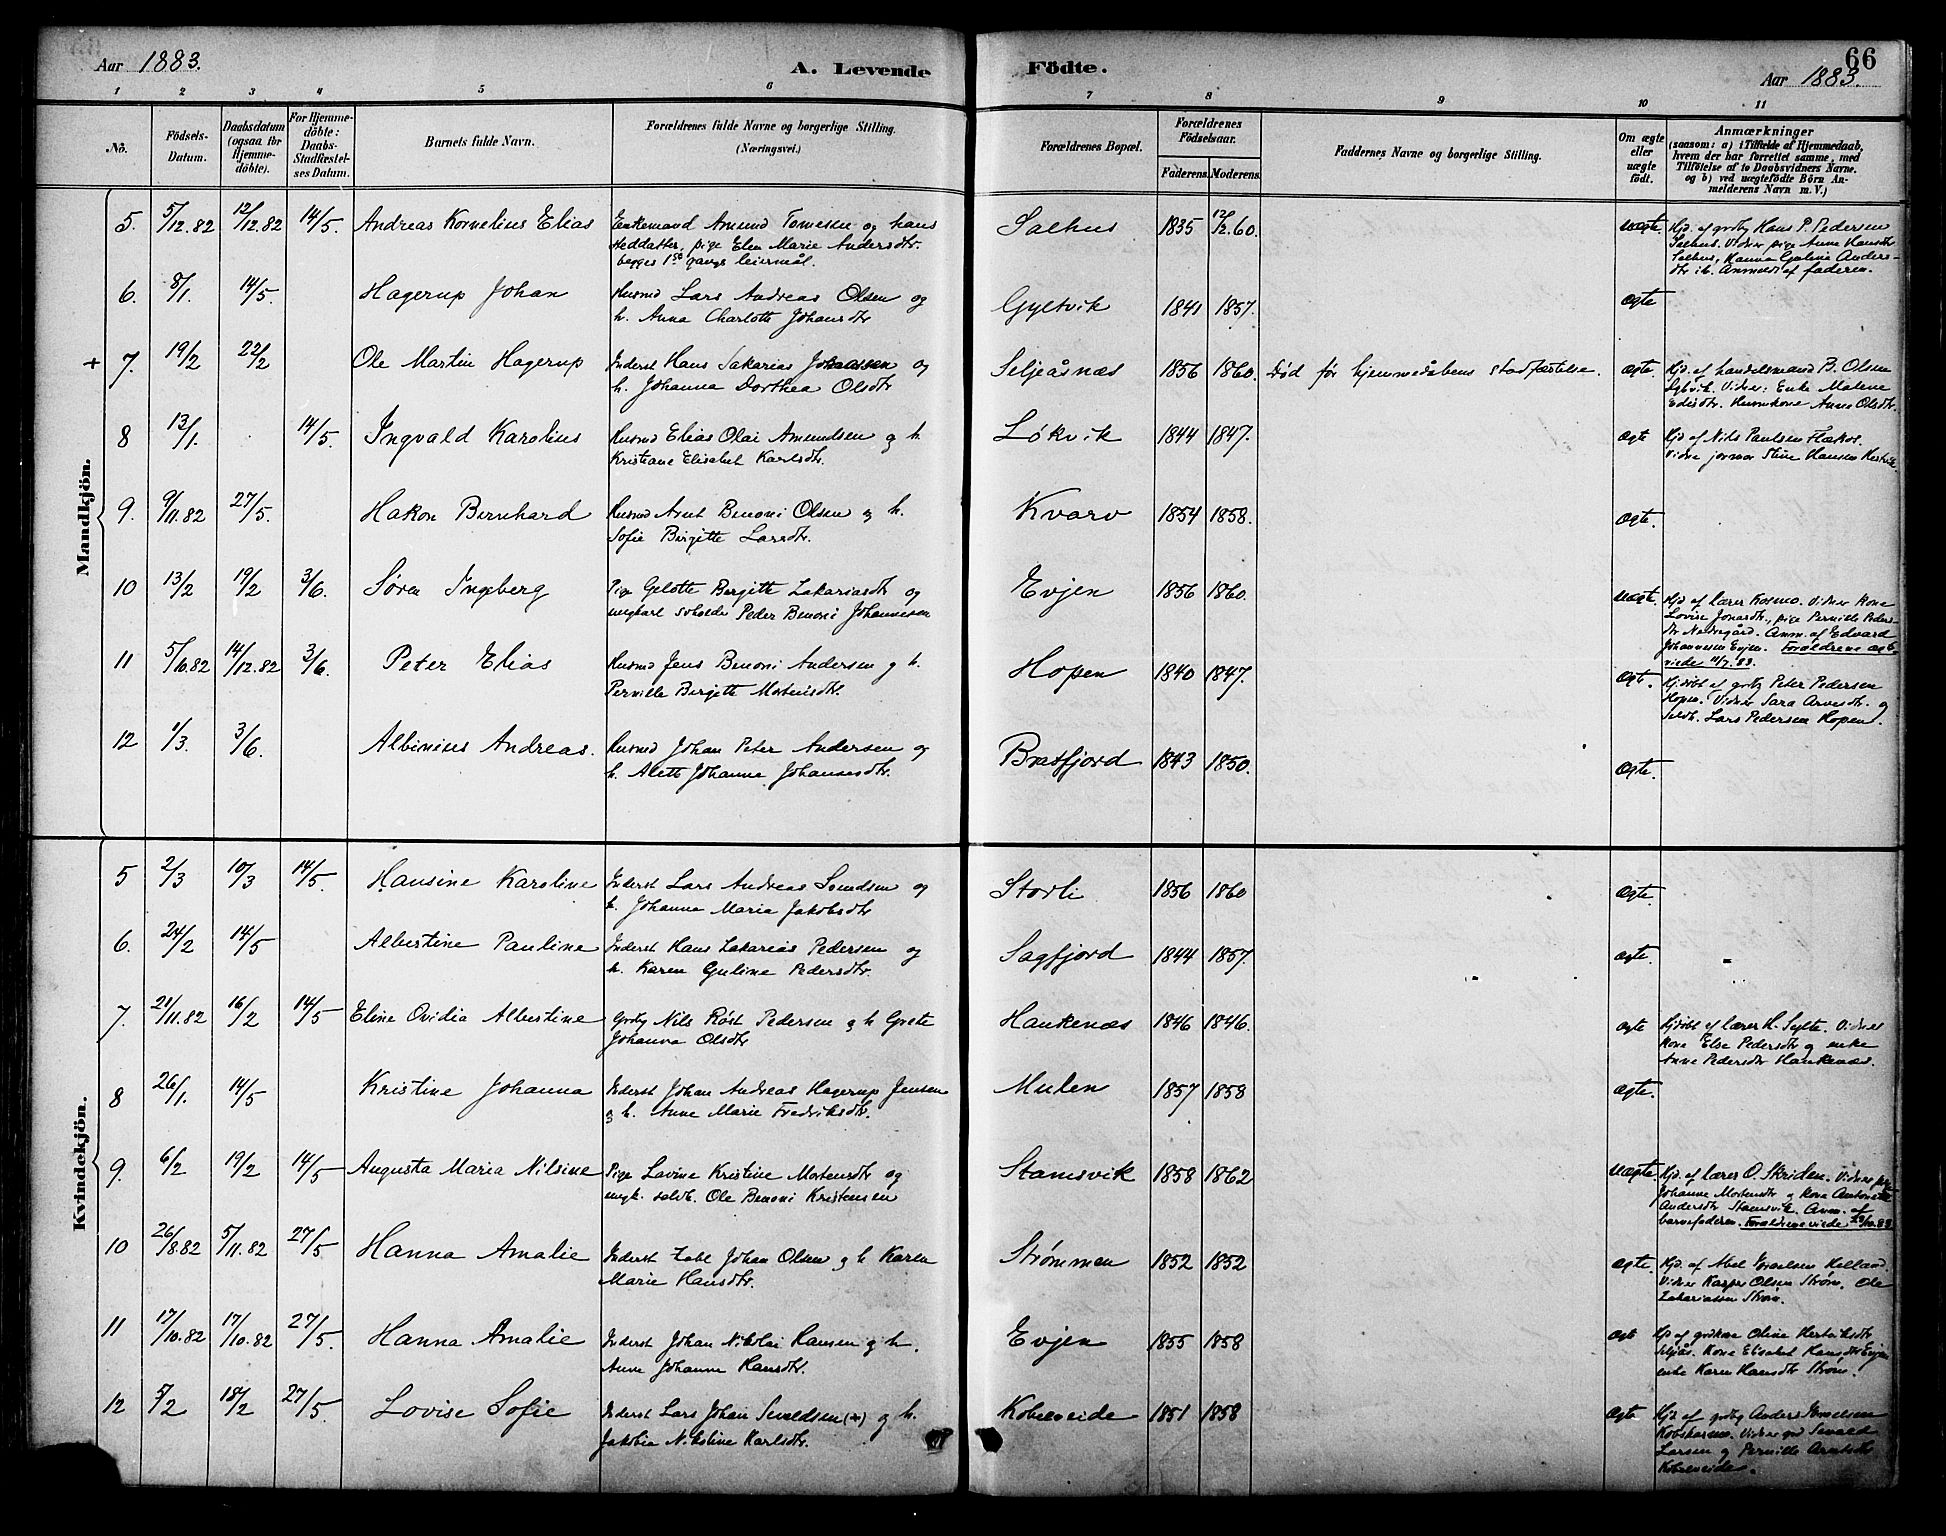 66
Aar 1883.
A. Levende Födte.
Aar 1883.
1 2 3 4 5 6 7 8 9 10 11
No.
Födsels-Datum.
Daabsdatum (ogsaa for Hjemme-döbte).
For Hjemme-döbte: Daabs-Stadfæstel-ses Datum.
Barnets fulde Navn.
Forældrenes fulde Navne og borgerlige Stilling. (Næringsvei.)
Forældrenes Bopæl.
Forældrenes Födselsaar.
Faderens. Moderens.
Faddernes Navne og borgerlige Stilling.
Om ægte eller uægte födt.
Anmærkninger
(saasom: a) i Tilfælde af Hjemmedaab,
hvem der har forrettet samme, med
Tilföielse af to Daabsvidners Navne.
og b) ved uægtefödte Börn An-
melderens Navn m. V.)
Mandkjön.
5. 5/12.82 12/12.82 14/5. Andreas Kornelius Elias Enkemand Amund Tomesen og hans Salhus 1835 12/2.60. uægte. Hjd. af grdby Hans P. Pedersen
steddatter, pige Elen Marie Andersdtr. Salhus. Vidner pige Anne Hansdtr
begges 1ste gangs leiermål. Salhus, Hanna Anders-
dtr ib. Anmeldt af faderen.
6. 8/1. 14/5. Hagerup Johan Husmd Lars Andreas Olsen og Gyltvik 1841 1857. ægte
h. Anna Charlotte Johansdtr
+ 7. 19/2 22/2 Ole Martin Hagerup Inderst Hans Sakarias Johnassen og Seljeåsnæs 1856 1860. Død før hjemmedåbens stadfæstelse. ægte. Hjd. af handelsmand B. Olsen
h. Johanna Dorthea Olsdtr Vidner: Enke Malene
Husmkone Anne Olsdtr.
8 13/1. 14/5. Ingvald Karolius Husmd Elias Olai Amundsen og h. Løkvik 1844 1847. ægte Hjd af Nils Paulsen
Kristiane Elisabet Karlsdtr. Vidne jormor Stine Hansen
9. 9/11.82 27/5. Hakon Bernhard Husmd Arnt Benoni Olsen og h. Kvarv 1854 1858. ægte.
Sofie Birgitte Larsdtr.
10 13/2 19/2 3/6. Søren Ingeberg Pige Gelotte Birgitte Zakariasdtr og Evjen 1856 1860. uægte. Hjd af lærer Kosmo. Vidner kone
ungkarl Peder Benoni Johannesen Lovise Jonasdtr., pige Pernille Peders-
dtr Nedregård. Anm. af Edvard
Johannesen Evjen. Forældrene ægte-
viede 11/7.83.
11 5/10.82 14/12.82 3/6. Peter Elias Husmd Jens Benoni Andersen og h. Hopen 1840 1847. ægte. Hjdöbt af grdby Peter Pedersen
Pernille Birgitte Mortensdtr. Hopen. Vidner Sara Arnesdtr. og
Seldb. Lars Pedersen Hopen.
12 1/3. 3/6. Albinius Andreas. Husmd Johan Peter Andersen og Bratfjord 1843 1850. ægte.
h. Aleth Johanna Johansesdtr.
Kvindekjön.
5 2/3 10/3 14/5. Hansine Karoline Inderst Lars Andreas og Storli 1856 1860 ægte.
h. Johanna Maria Jakobsdtr
6. 24/2 14/5 Albertine Pauline Inderst Hans Zakarias Pedersen og Sagfjord 1844 1857. ægte.
h. Karen Guline Pedersdtr.
7. 21/11.82 16/2 14/5 Eline Ovidia Albertine Grdby Nils Røst Pedersen og h Grete Haukenæs 1846 1846. ægte Hjdöbt af lærer H. Sylte. Vidner
Johanna Olsdtr kone Else Pedersdtr og enke
Anne Pedersdtr Haukenæs.
8 26/1. 14/5 Kristine Johanna Inderst Johan Andreas Hagerup Jensen Mulen 1857 1858 ægte.
og h. Anne Marie Fredriksdtr.
9. 6/2 19/2 14/5 Augusta Maria Nilsine Pige Lovine Kristine Mortensdtr og Stamsvik 1858 1862 uægte. Hjd. af lærer O. Skriden. Vidner pige
ungk. seldb. Ole Benoni Kristensen Johanne Mortensdtr og kone
Andersdtr Stamsvik. Anm. af
barnefaderen. Forældrene viede
10 26/8.82 5/11.82 27/5 Hanna Amalie Inderst Johan Olsen og h Karen Strømmen 1852 1852 ægte. Hjd. af Abel Helland.
Marie Hansdtr. Vidner Kasper Olsen Strøm. Ole
Zakariassen Strøm.
11 17/10.82 17/10.82 27/5. Hanna Amalie Inderst Johan Nikolai Hansen og h. Evjen 1855 1858 ægte Hjd af grdkone Oline
Anne Johanne Hansdtr. Kone Elisabet Hansdtr Evjen
enke Karen Hansdtr Strøm.
12 5/2 18/2 27/5. Lovise Sofie Inderst Lars Johan Sevaldsen (+) og h. Kobbeveide 1851 1858 ægte Hjd af grdby Anders
Jakobia Nikoline Karlsdtr. Vidner Sevald
Larsen og Pernille Arntsdtr
Kobbeveide.